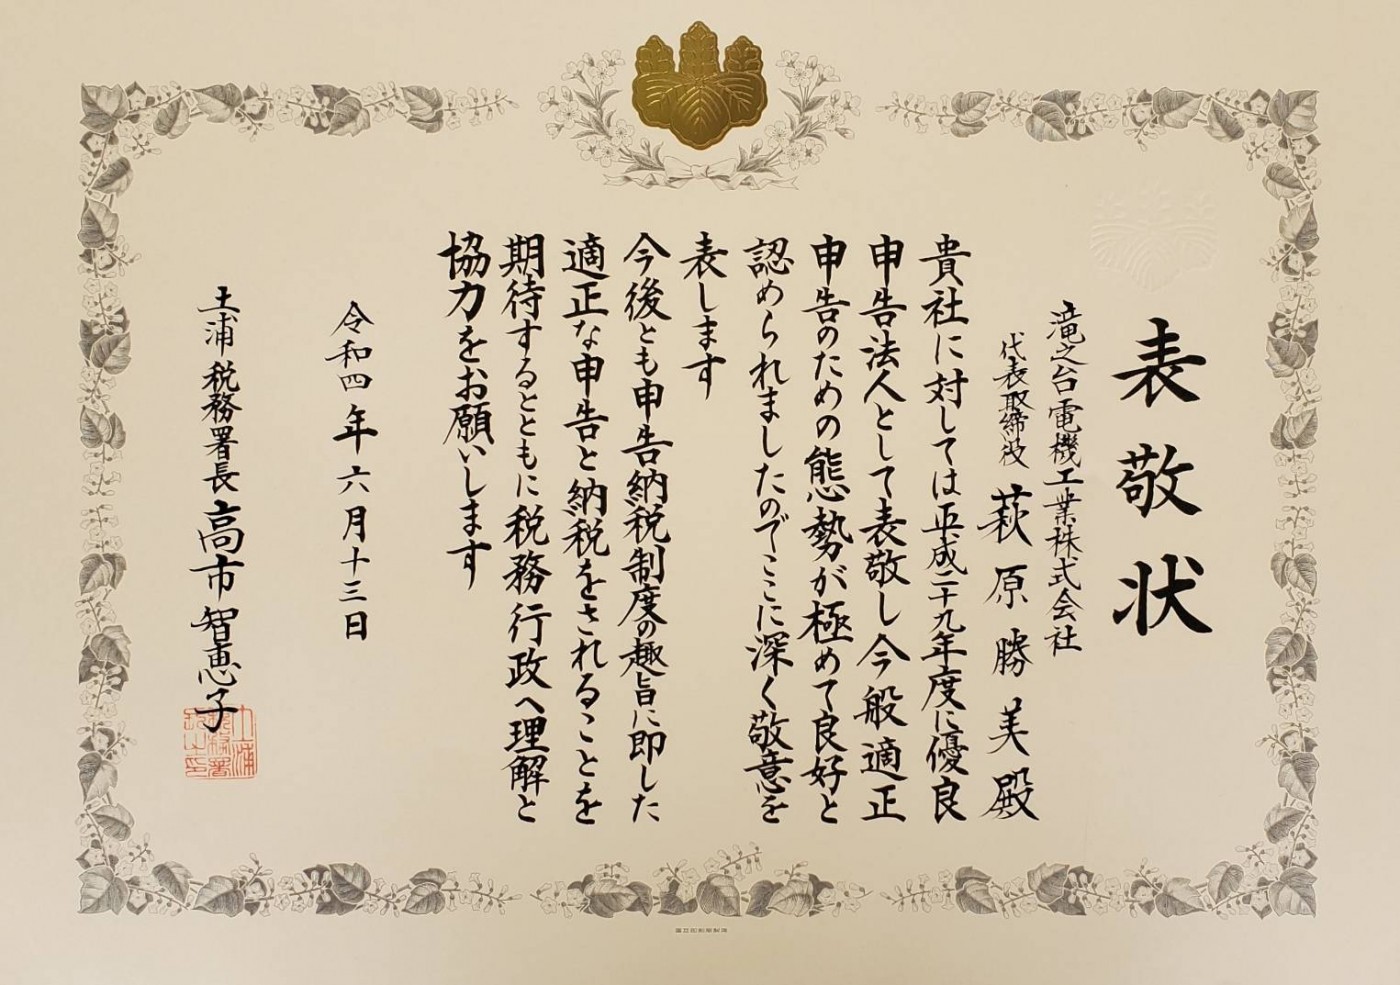 表敬状
滝之台電機工業株式会社
代表取締役 萩原勝美殿
貴社に対しては平成二十九年度に優良
申告法人として表敬し今般適正
申告のための態勢が極めて良好と
認められましたのでここに深く敬意を
表します
今後とも申告納税制度の趣旨に即した
適正な申告と納税をされることを
期待するとともに税務行政へ理解と
協力をお願いします
令和四年六月十三日
土浦税務署長 高市智恵子
土浦税務署長之印